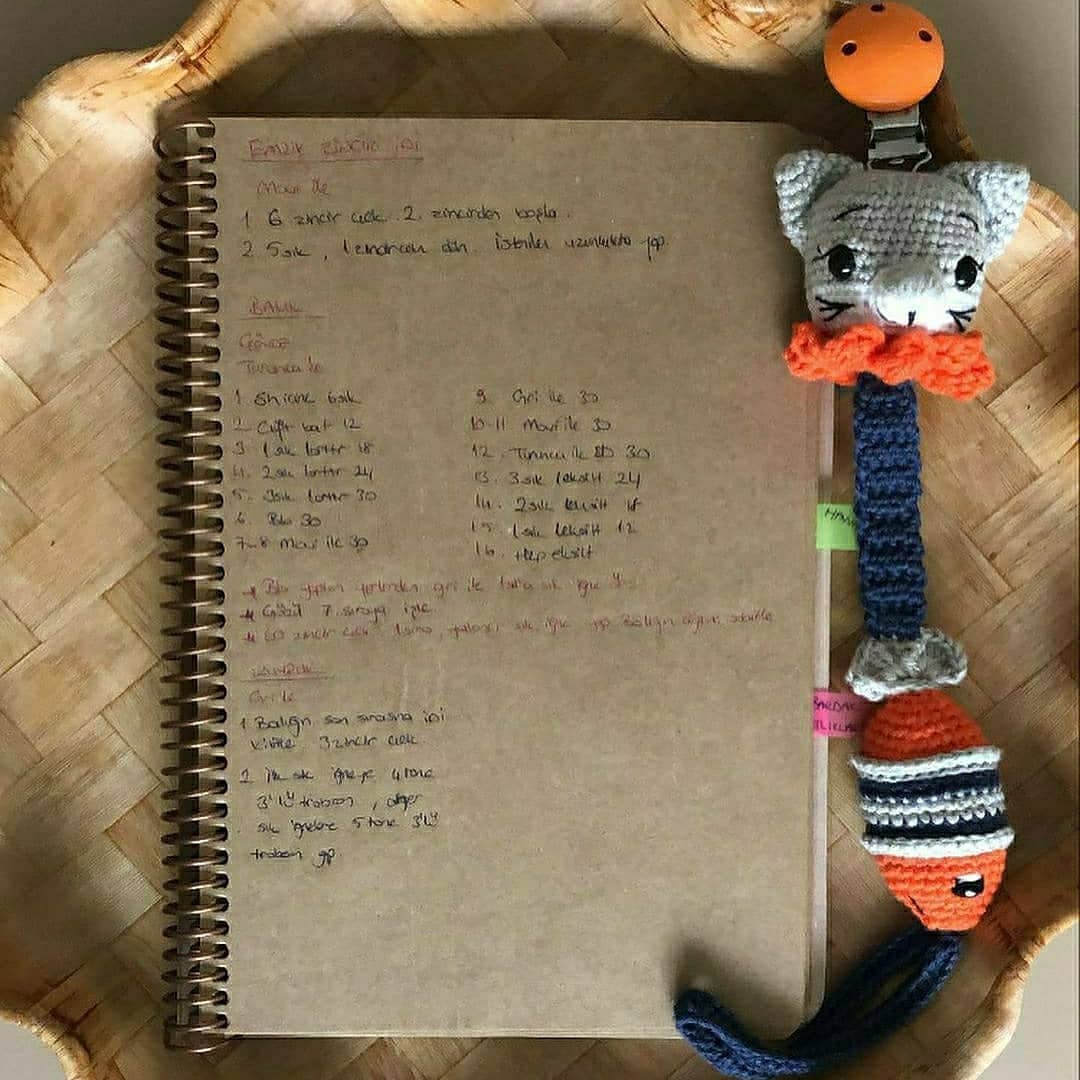 EMZİK ZİNCİR İPİ
Mavi ile
1 6 zincir çek. 2. zincirden başla.
2 5 sık, 1 zincir çek dön. İstenilen uzunlukta yap.
BALIK
GÖVDE
Turuncu ile
1 Sh içine 6 sık
2 Çift bat 12
3. 1 sık 1 arttır 18
4. 2 sık 1 arttır 24
5. 3 sık 1 arttır 30
6. Blo 30
7-8 Mavi ile 30
9. Gri ile 30
10-11 Mavi ile 30
12. Turuncu ile Blo 30
13. 3 sık 1 eksilt 24
14. 2 sık 1 eksilt 18
15. 1 sık 1 eksilt 12
16. Hep eksilt
Blo yapılan yerlerden gri ile sık iğne
Gözü 7. sıraya
60 zincir çek sık iğne yap Balığın
KUYRUK
Gri ile
1 Balığın son sırasına ipi
3 zincir çek.
2 ilk sık iğneye 4 tane
3'lü trabzan, diğer
sık iğnelere 5 tane 3'lü
trabzan yap.
BARDAK